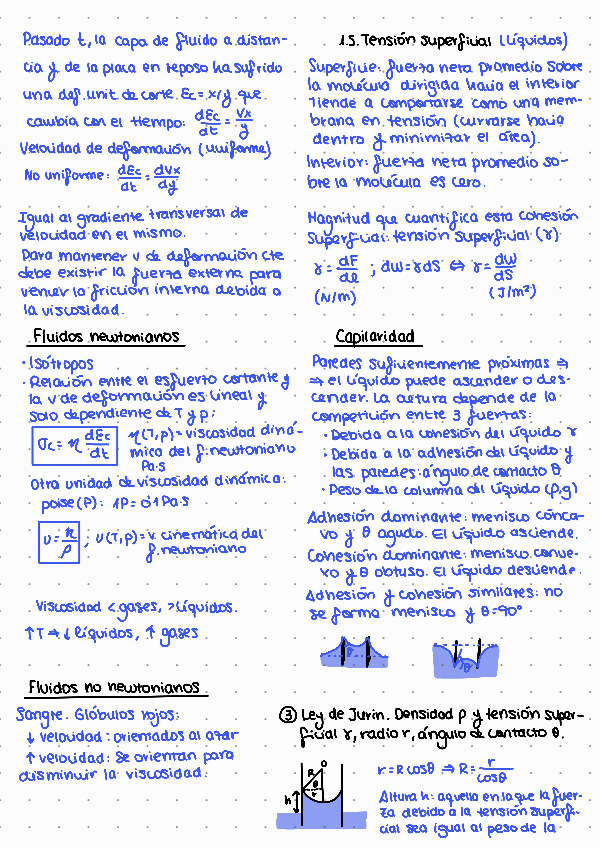 Pasado t, la capa de fluido a distan-
cia y de la placa en reposo ha sufrido
una def. unit de corte. εc = x/y que
cambia con el tiempo: dεc/dt = Vx/y
Velocidad de deformación (uniforme)
No uniforme: dεc/dt = dVx/dy
Igual al gradiente transversal de
velocidad en el mismo.
Para mantener v de deformación cte
debe existir la fuerza externa para
vencer la fricción interna debida a
la viscosidad.
Fluidos newtonianos
· Isótropos
· Relación entre el esfuerzo cortante y
la v de deformación es lineal y
solo dependiente de T y p:
σc = η dεc/dt
η(T,p) = viscosidad diná-
mica del f. newtoniano
Pa·s
Otra unidad de viscosidad dinámica:
poise (P): 1P = 0'1 Pa·s
υ = η/ρ ; υ(T,p) = v. cinemática del
f. newtoniano
Viscosidad < gases, > líquidos.
↑T ⇒ ↓ líquidos, ↑ gases
Fluidos no newtonianos
Sangre. Glóbulos rojos:
↓ velocidad: orientados al azar
↑ velocidad: se orientan para
disminuir la viscosidad.
1.5. Tensión superficial (líquidos)
Superficie: fuerza neta promedio sobre
la molécula dirigida hacia el interior
Tiende a comportarse como una mem-
brana en tensión (curvarse hacia
dentro y minimizar el área).
Interior: fuerza neta promedio so-
bre la molécula es cero.
Magnitud que cuantifica esta cohesión
superficial: tensión superficial (γ)
γ = dF/dl ; dW = γdS ⇔ γ = dW/dS
(N/m) (J/m²)
Capilaridad
Paredes suficientemente próximas ⇒
⇒ el líquido puede ascender o des-
cender. La altura depende de la
competición entre 3 fuerzas:
· Debida a la cohesión del líquido γ
· Debida a la adhesión del líquido y
las paredes: ángulo de contacto θ
· Peso de la columna del líquido (ρ,g)
Adhesión dominante: menisco cónca-
vo y θ agudo. El líquido asciende.
Cohesión dominante: menisco conve-
xo y θ obtuso. El líquido desciende.
Adhesión y cohesión similares: no
se forma menisco y θ=90°
θ
θ
③ Ley de Jurin. Densidad ρ y tensión super-
ficial γ, radio r, ángulo de contacto θ.
O
R
θ
r
h
r = R cosθ ⇒ R = r/cosθ
Altura h: aquella en la que la fuer-
za debido a la tensión superfi-
cial sea igual al peso de la